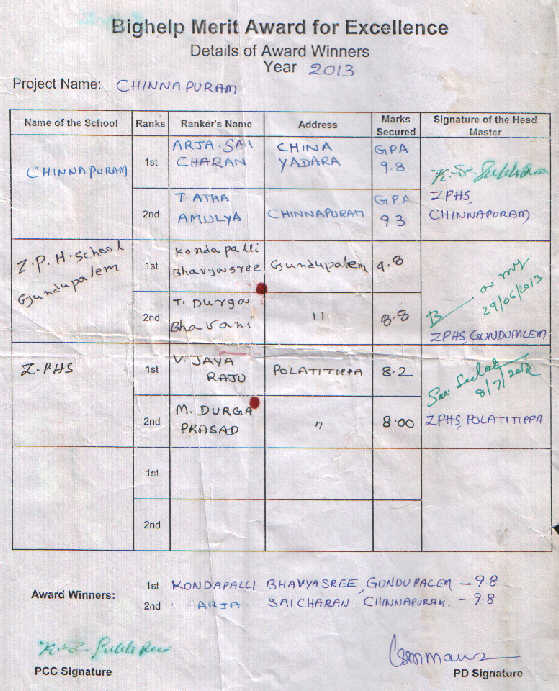 Bighelp Merit Award for Excellence
Details of Award Winners
Year 2013
Project Name: CHINNAPURAM
Name of the School Ranks Ranker's Name Address Marks Secured Signature of the Head Master
CHINNAPURAM 1st ARJA.SAI CHARAN CHINA YADARA GPA 9.8
2nd T ATHA AMULYA CHINNAPURAM GPA 93 ZPHS CHINNAPURAM
Z.P.H.School Gundupalem 1st Kondapalli Bhavyasree Gundupalem 9.8
2nd T. Durga Bhavani 11 8.8 29/06/2013 ZPHS GUNDUPALEM
Z.PHS 1st V. JAYA RAJU POLATITIPPA 8.2
2nd M. DURGA PRASAD " 8.00 ZPHS, POLATITIPPA
1st
2nd
Award Winners:
1st KONDAPALLI BHAVYASREE, GUNDUPALEM - 9.8
2nd ARJA SAICHARAN CHINNAPURAM. - 9.8
PCC Signature
PD Signature